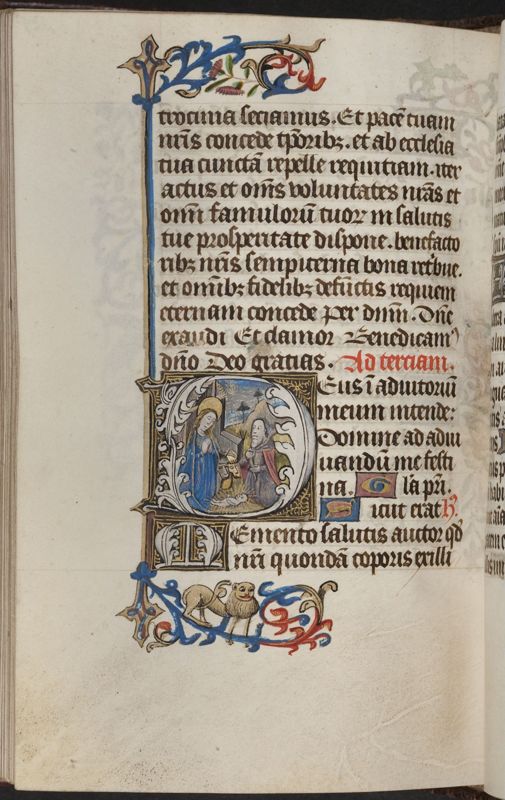 trocinia seciamus. Et pacē tuam
nrīs concede tp̄oribꝫ. et ab ecclesia
tua cunctā repelle nequitiam. iter
actus et om̄s voluntates nr̄as et
om̄i famulorū tuoꝝ in salutis
tue prosperitate dispone. benefacto
ribꝫ nr̄is sempiterna bona ret'bue.
et om̄ibꝫ fidelibꝫ defūctis requiem
eternam concede Per dn̄m. Dn̄e
exaudi Et clamor Benedicam'
dn̄o Deo gratias. Ad terciam.
Deus ī adiutoriū
meum intende:
Domine ad adiu
uandū me festi
na. Gla pr̄i.
Sicut erat h̄.
Memento salutis auctor qd̄
nr̄i quondā coporis ex illi